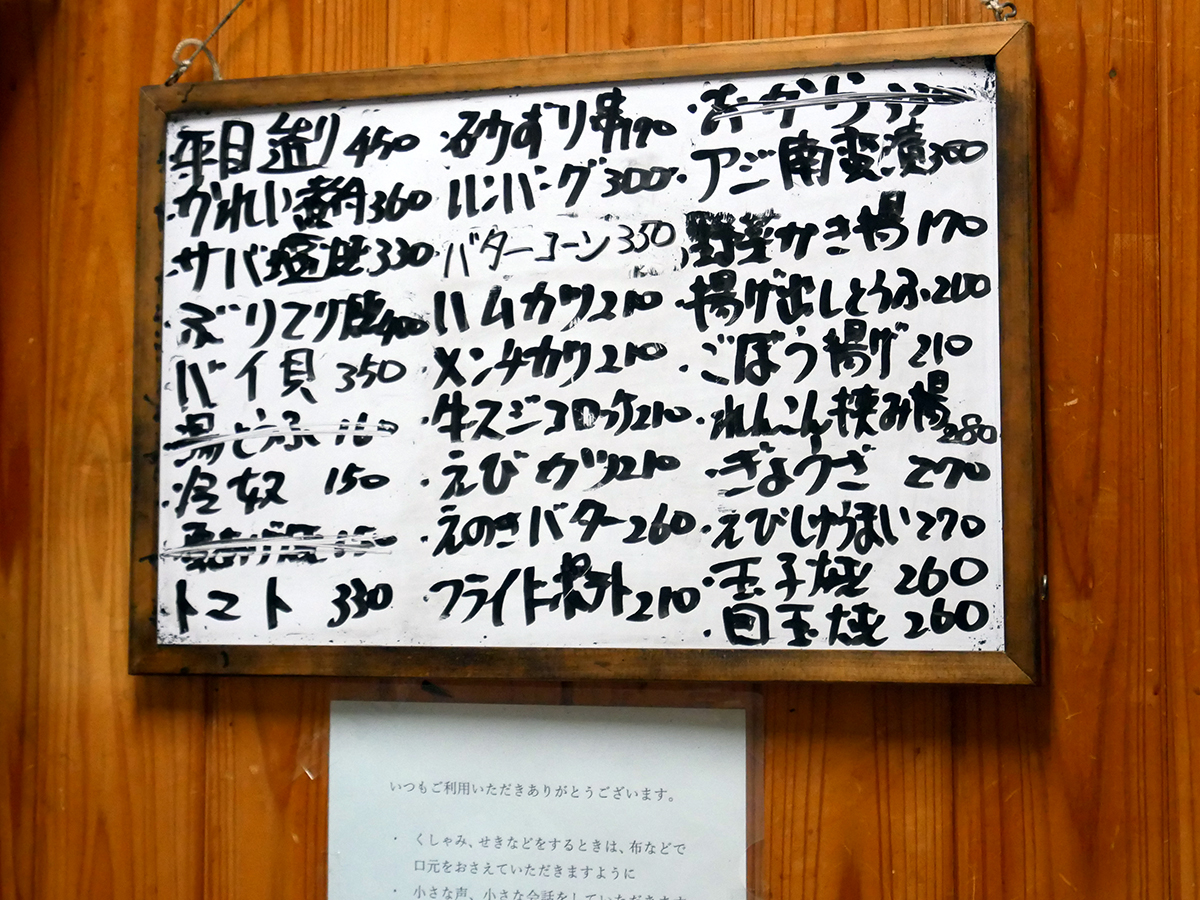 平目造り 450
・かれい煮付 360
・サバ塩焼 330
ぶりてり焼 400
バイ貝 350
湯どうふ 160
・冷奴 150
150
トマト 330
・砂ずり串 170
ハンバーグ 300
バターコーン 350
ハムカツ 210
・メンチカツ 210
・牛スジコロッケ 210
・えびカツ 210
・えのきバター 260
フライドポテト 210
・おから
・アジ南蛮漬 300
野菜かき揚 170
・揚げ出しとうふ・260
・ごぼう揚げ 210
・れんこん挟み揚 280
・ぎょうざ 270
・えびしゅうまい 270
・玉子焼 260
・目玉焼 260
いつもご利用いただきありがとうございます。
・ くしゃみ、せきなどをするときは、布などで
口元をおさえていただきますように
・ 小さな声、小さな会話をしていただきます